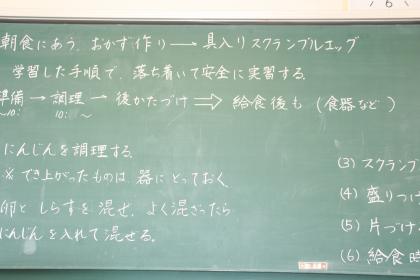 朝食にあう、おかず作り → 具入りスクランブルエッグ
学習した手順で、落ち着いて安全に実習する。
準備 → 調理 → 後かたづけ ⇒ 給食後も (食器など)
~10: 10: ~
にんじんを調理する。
※ でき上がったものは、器にとっておく
卵としらすを混ぜ、よく混ざったら
にんじんを入れて混ぜる。
(3) スクランブ
(4) 盛りつけ
(5) 片づけ
(6) 給食時